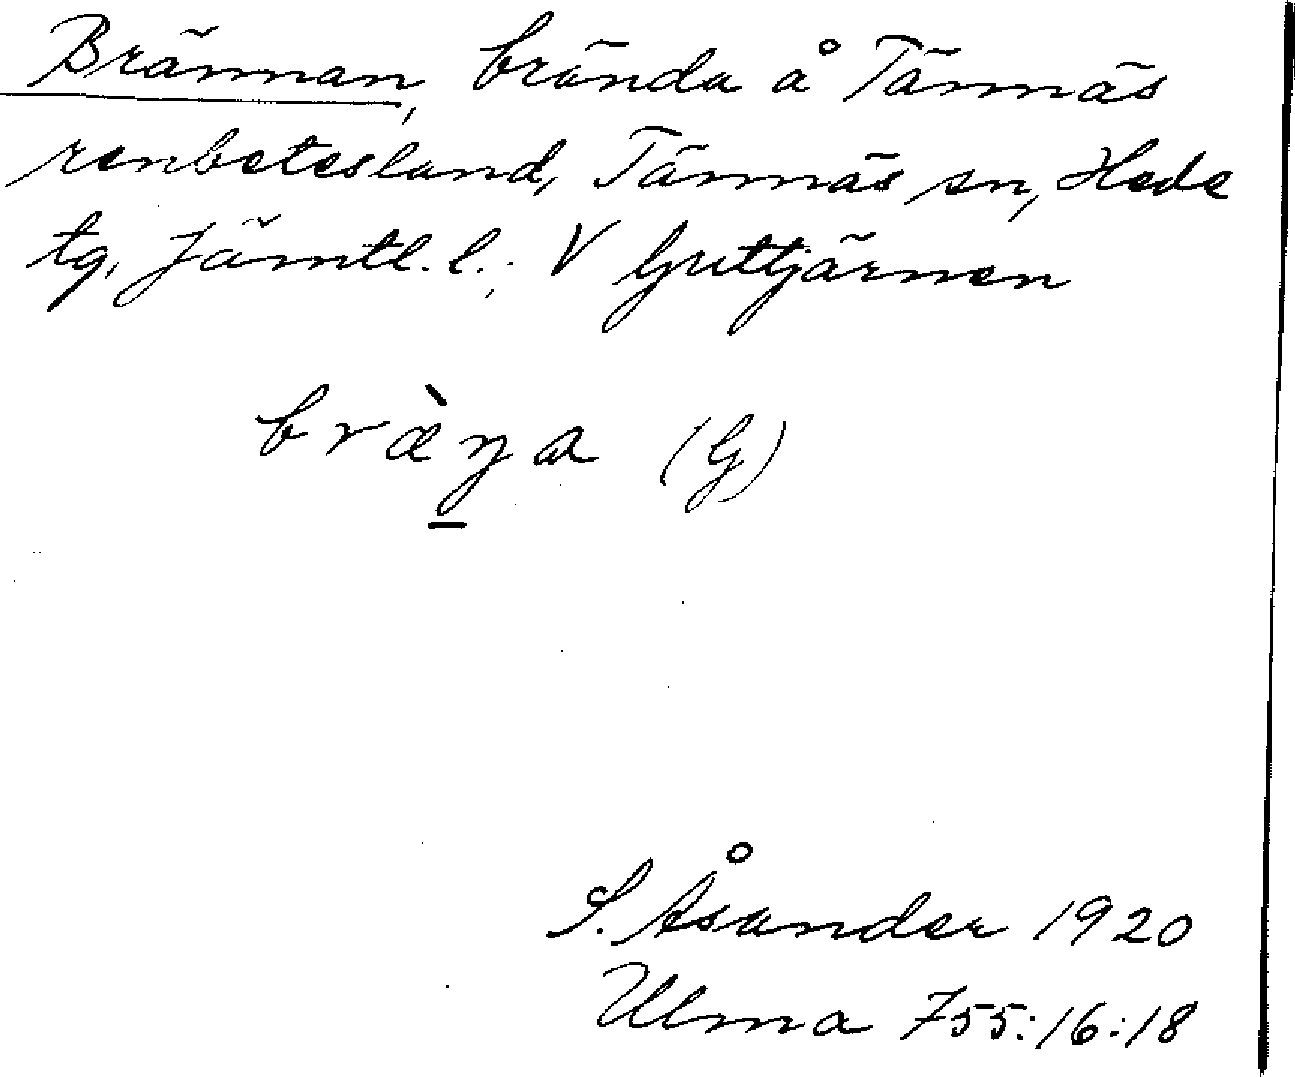 Brännan, brända å Tännäs
renbetesland, Tännäs sn, Hede
tg, Jämtl. l.; V Guttjärnen
bræ̀ŋa (G)
S. Åsander 1920
Ulma 755:16:18